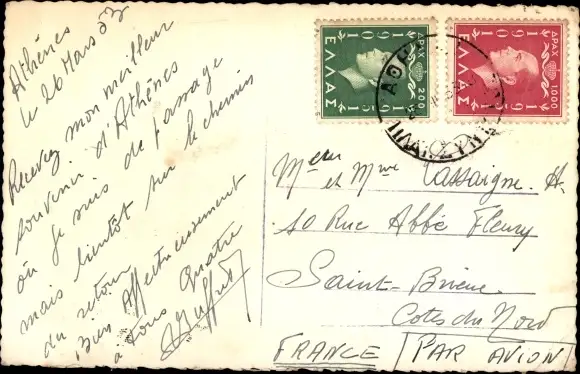 Athènes
le 26 Mars 53
Recevez mon meilleur
souvenir d'Athènes
où je suis de passage
mais bientôt sur le chemin
du retour
Bien Affectueusement
à tous quatre
ΔΡΑΧ
1915
1915
ΕΛΛΑΣ
200
ΔΡΑΧ
1915
1915
ΕΛΛΑΣ
1000
ΑΘΗ
Mr et Mme Cassaigne. A.
10 Rue Abbé Fleury
Saint-Brieuc
Cotes du Nord
FRANCE (PAR AVION)